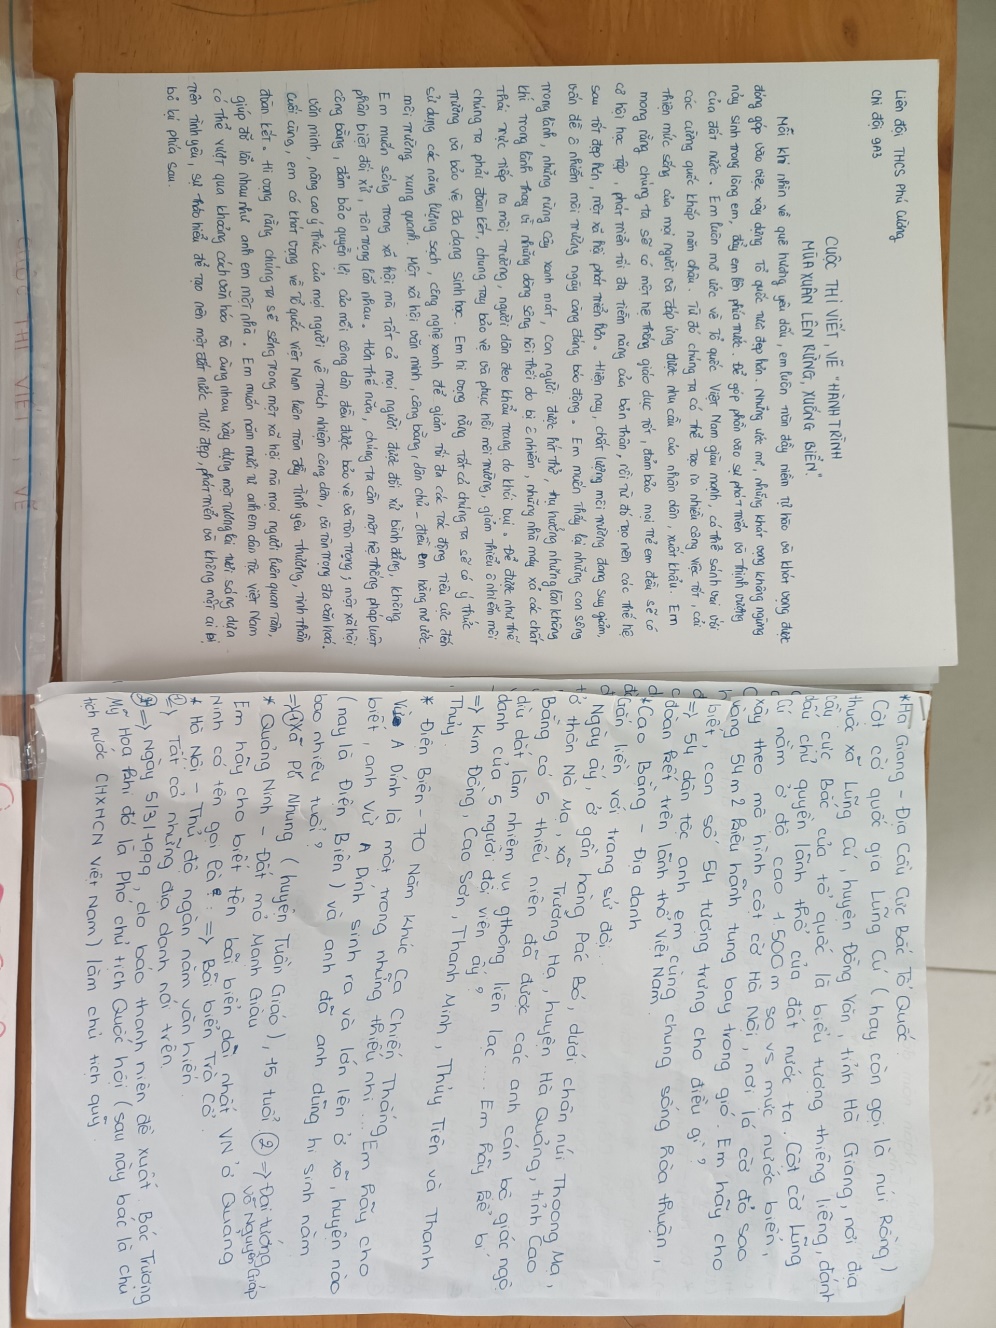 Liên đội THCS Phú Cường
Chi đội 9A3
CUỘC THI VIẾT, VẼ "HÀNH TRÌNH
MÙA XUÂN LÊN RỪNG, XUỐNG BIỂN".
Mỗi khi nhìn về quê hương yêu dấu, em luôn tràn đầy niềm tự hào và khát vọng được
đóng góp vào việc xây dựng Tổ quốc tươi đẹp hơn. Những ước mơ, những khát vọng không ngừng
nảy sinh trong lòng em, đẩy em lên phía trước. Để góp phần vào sự phát triển và thịnh vượng
của đất nước. Em luôn mơ ước về Tổ quốc Việt Nam giàu mạnh, có thể sánh vai với
các cường quốc khắp năm châu. Từ đó chúng ta có thể tạo ra nhiều công việc tốt, cải
thiện mức sống của mọi người và đáp ứng được nhu cầu của nhân dân, xuất khẩu. Em
mong rằng chúng ta sẽ có một hệ thống giáo dục tốt, đảm bảo mọi trẻ em đều sẽ có
cơ hội học tập, phát triển tối đa tiềm năng của bản thân, rồi từ đó tạo nên các thế hệ
sau tốt đẹp hơn, một xã hội phát triển hơn. Hiện nay, chất lượng môi trường đang suy giảm,
vấn đề ô nhiễm môi trường ngày càng đáng báo động. Em muốn thấy lại những con sông
trong lành, những rừng cây xanh mát, con người được hít thở, thụ hưởng những làn không
khí trong lành thay vì những dòng sông hôi thối do bị ô nhiễm, những nhà máy xả các chất
thải trực tiếp ra môi trường, người dân đeo khẩu trang do khói bụi. Để được như thế
chúng ta phải đoàn kết, chung tay bảo vệ và phục hồi môi trường, giảm thiểu ô nhiễm môi
trường và bảo vệ đa dạng sinh học. Em hi vọng rằng tất cả chúng ta sẽ có ý thức
sử dụng các năng lượng sạch, công nghệ xanh để giảm tối đa các tác động tiêu cực đến
môi trường xung quanh. Một xã hội văn minh, công bằng, dân chủ - điều em hằng mơ ước.
Em muốn sống trong xã hội mà tất cả mọi người được đối xử bình đẳng, không
phân biệt đối xử, tôn trọng lẫn nhau. Hơn thế nữa, chúng ta cần một hệ thống pháp luật
công bằng, đảm bảo quyền lợi của mỗi công dân đều được bảo vệ và tôn trọng; một xã hội
văn minh, nâng cao ý thức của mọi người về trách nhiệm công dân, và tôn trọng đa văn hoá.
Cuối cùng, em có khát vọng về Tổ quốc Việt Nam luôn tràn đầy tình yêu thương, tinh thần
đoàn kết. Hi vọng rằng chúng ta sẽ sống trong một xã hội mà mọi người luôn quan tâm,
giúp đỡ lẫn nhau như anh em một nhà. Em muốn năm mươi tư anh em dân tộc Việt Nam
có thể vượt qua khoảng cách văn hóa và cùng nhau xây dựng một tương lai tươi sáng dựa
trên tình yêu, sự thấu hiểu để tạo nên một đất nước tươi đẹp, phát triển và không một ai bị
bỏ lại phía sau.
*Hà Giang - Địa Đầu Cực Bắc Tổ Quốc
Cột cờ quốc gia Lũng Cú (hay còn gọi là núi Rồng)
thuộc xã Lũng Cú, huyện Đồng Văn, tỉnh Hà Giang, nơi địa
đầu cực Bắc của tổ quốc là biểu tượng thiêng liêng, đánh
dấu chủ quyền lãnh thổ của đất nước ta. Cột cờ Lũng
Cú nằm ở độ cao 1500m so vs mực nước biển,
xây theo mô hình cột cờ Hà Nội, nơi lá cờ đỏ sao
vàng 54m2 kiêu hãnh tung bay trong gió. Em hãy cho
biết, con số 54 tượng trưng cho điều gì?
=> 54 dân tộc anh em cùng chung sống hòa thuận,
đoàn kết trên lãnh thổ Việt Nam
*Cao Bằng - Địa danh
Gắn liền với trang sử đội
Ngày ấy, ở gần hang Pác Bó, dưới chân núi Thoong Mạ,
ở thôn Nà Mạ, xã Trường Hà, huyện Hà Quảng, tỉnh Cao
Bằng có 5 thiếu niên đã được các anh cán bộ giác ngộ
dìu dắt làm nhiệm vụ gthông liên lạc.... Em hãy kể bí
danh của 5 người đội viên ấy?
=> Kim Đồng, Cao Sơn, Thanh Minh, Thủy Tiên và Thanh
Thủy.
* Điện Biên - 70 Năm Khúc Ca Chiến Thắng
Vừ A Dính là một trong những thiếu nhi... Em hãy cho
biết, anh Vừ A Dính sinh ra và lớn lên ở xã, huyện nào
(nay là Điện Biên) và anh đã anh dũng hi sinh năm
bao nhiêu tuổi?
=> ① Xã Pú Nhung (huyện Tuần Giáo), 15 tuổi ② => Đại tướng
Võ Nguyên Giáp
* Quảng Ninh - Đất mỏ Mạnh Giàu
Em hãy cho biết tên bãi biển dài nhất VN ở Quảng
Ninh có tên gọi là: => Bãi biển Trà Cổ.
* Hà Nội - Thủ đô ngàn năm văn hiến
① => Tất cả những địa danh nói trên.
② => Ngày 5/3/1999, do báo thanh niên đề xuất. Bác Trương
Mỹ Hoa khi đó là Phó chủ tịch Quốc hội (sau này bác là chủ
tịch nước CHXHCN Việt Nam) làm chủ tịch quỹ.